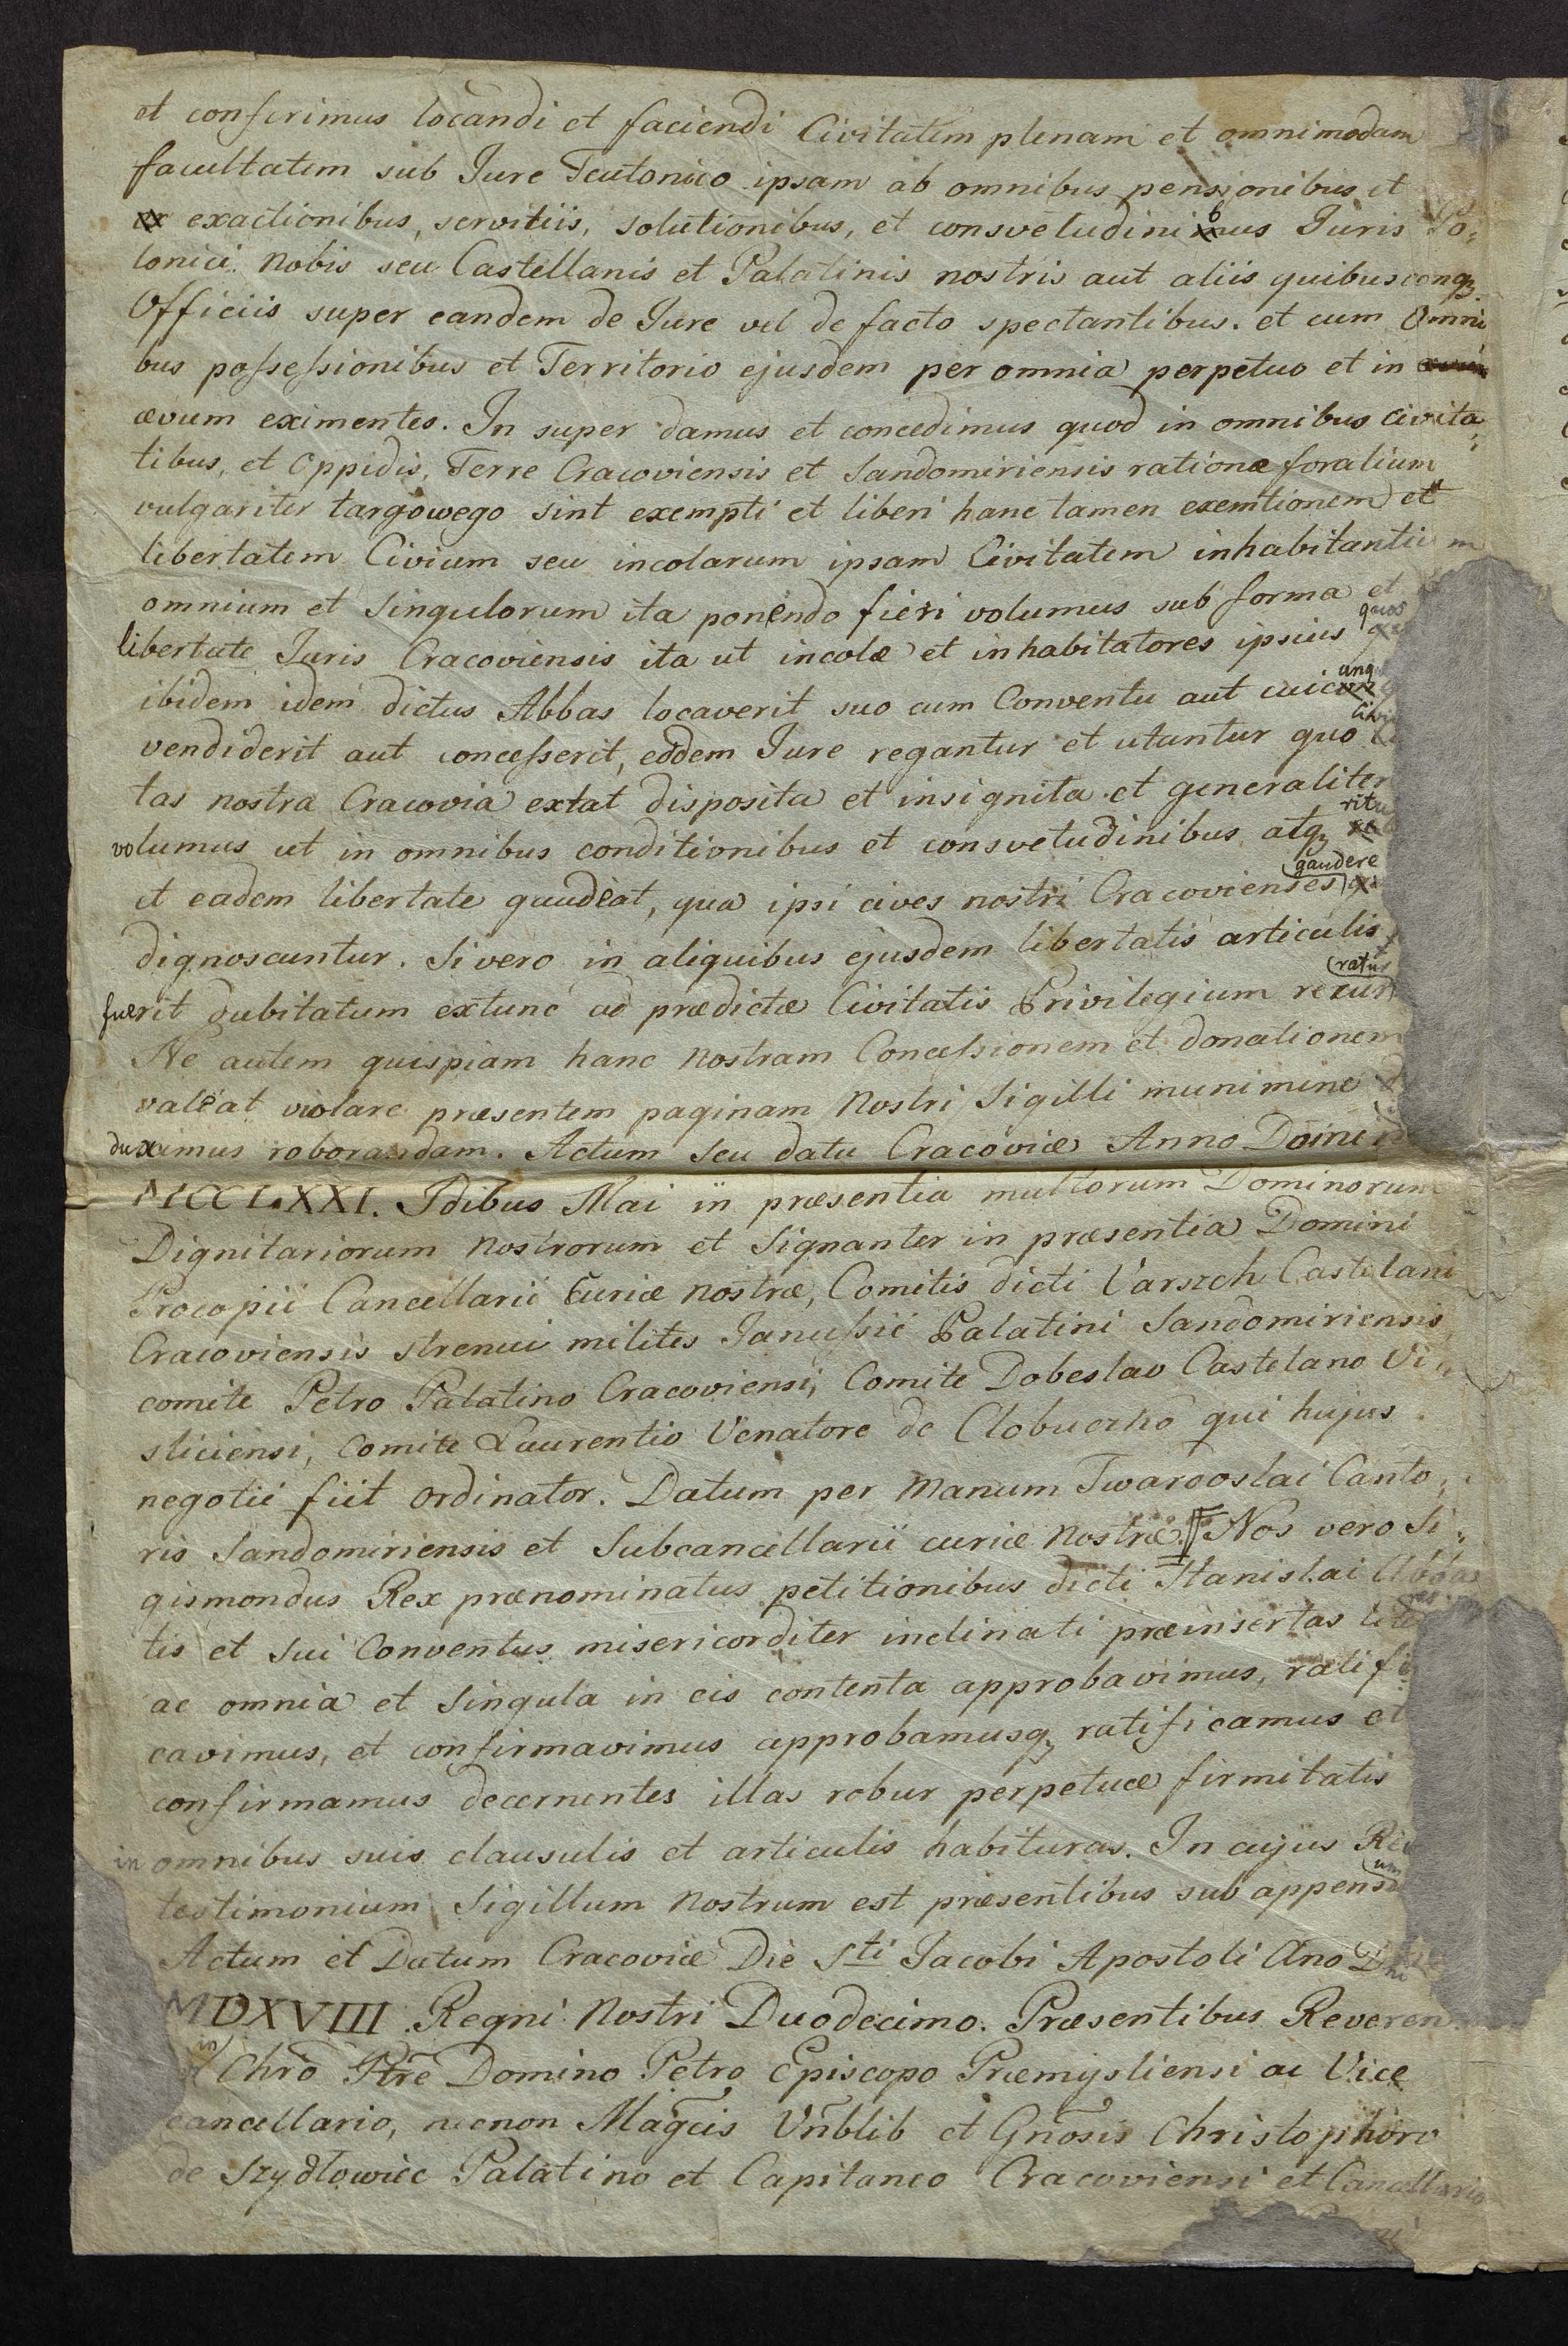 et conferimus locandi et faciendi Civitatem plenam et omnimodam
facultatem sub Jure Teutonico ipsam ab omnibus pensionibus et
exactionibus, servitiis, solutionibus, et consvetudinibus Juris Po„
lonici nobis seu Castellanis et Palatinis nostris aut aliis quibusconqꝫ
Officiis super eandem de Jure vel de facto spectantibus. et cum Omni
bus possessionibus et Territorio ejusdem per omnia perpetuo et in
ævum eximentes. In super damus et concedimus quod in omnibus civita„
tibus, et Oppidis, Terre Cracoviensis et Sandomiriensis rationæ foralium
vulgariter targowego sint exempti et liberi hanc tamen exemtionem et
libertatem Civium seu incolarum ipsam Civitatem inhabitantium
omnium et Singulorum ita ponendo fieri volumus sub forma et
libertate Juris Cracoviensis ita ut incolæ et inhabitatores ipsius quos
ibidem idem dictus Abbas locaverit suo cum Conventu aut cuicunq
vendiderit aut concesserit, eodem Jure regantur et utantur quo Civi
tas nostra Cracovia extat disposita et insignita et generaliter
volumus ut in omnibus conditionibus et consvetudinibus atqꝫ ritu
et eadem libertate gaudeat, qua ipsi cives nostri Cracovienses gaudere
dignoscuntur. Si vero in aliquibus ejusdem libertatis articulis
fuerit dubitatum extunc ad prædictæ Civitatis Privilegium recurratur
Ne autem quispiam hanc nostram Concessionem et donationem
valeat violare præsentem paginam Nostri Sigilli munimine
duximus roborandam. Actum seu datu Cracoviæ Anno Domini
MCCLXXI. Idibus Mai in præsentia multorum Dominorum
Dignitariorum nostrorum et Signanter in præsentia Domini
Procopii Cancellarii Curiæ nostræ, Comitis dicti Varszch Castelani
Cracoviensis strenui milites Janussii Palatini Sandomiriensis
comite Petro Palatino Cracoviensi, Comite Dobeslao Castelano Vi„
sliciensi, Comite Laurentio Venatore de Clobucrko qui hujus
negotii fiit Ordinator. Datum per Manum Twardoslai Canto„
ris Sandomiriensis et Subcancellarii curiæ Nostræ. Nos vero Si„
gismondus Rex prænominatus petitionibus dicti Stanislai Abba
tis et sui Conventus misericorditer inclinati præinsertas
ac omnia et Singula in eis contenta approbavimus, ratifi
cavimus, et confirmavimus approbamusqꝫ ratificamus et
confirmamus decernentes illas robur perpetuæ firmitatis
in omnibus suis clausulis et articulis habituras. In cujus Rei
testimonium Sigillum Nostrum est præsentibus sub appensum
Actum et Datum Cracoviæ Die Sti Jacobi Apostoli Ano Dni
MDXVIII Regni Nostri Duodecimo. Præsentibus Reveren
in Chro Ptre Domino Petro Episcopo Præmysliensi ac Vice
cancellario, necnon Magcis Vnblib et Gnosis Christophoro
de Szydłowiec Palatino et Capitaneo Cracoviensi et Cancellario